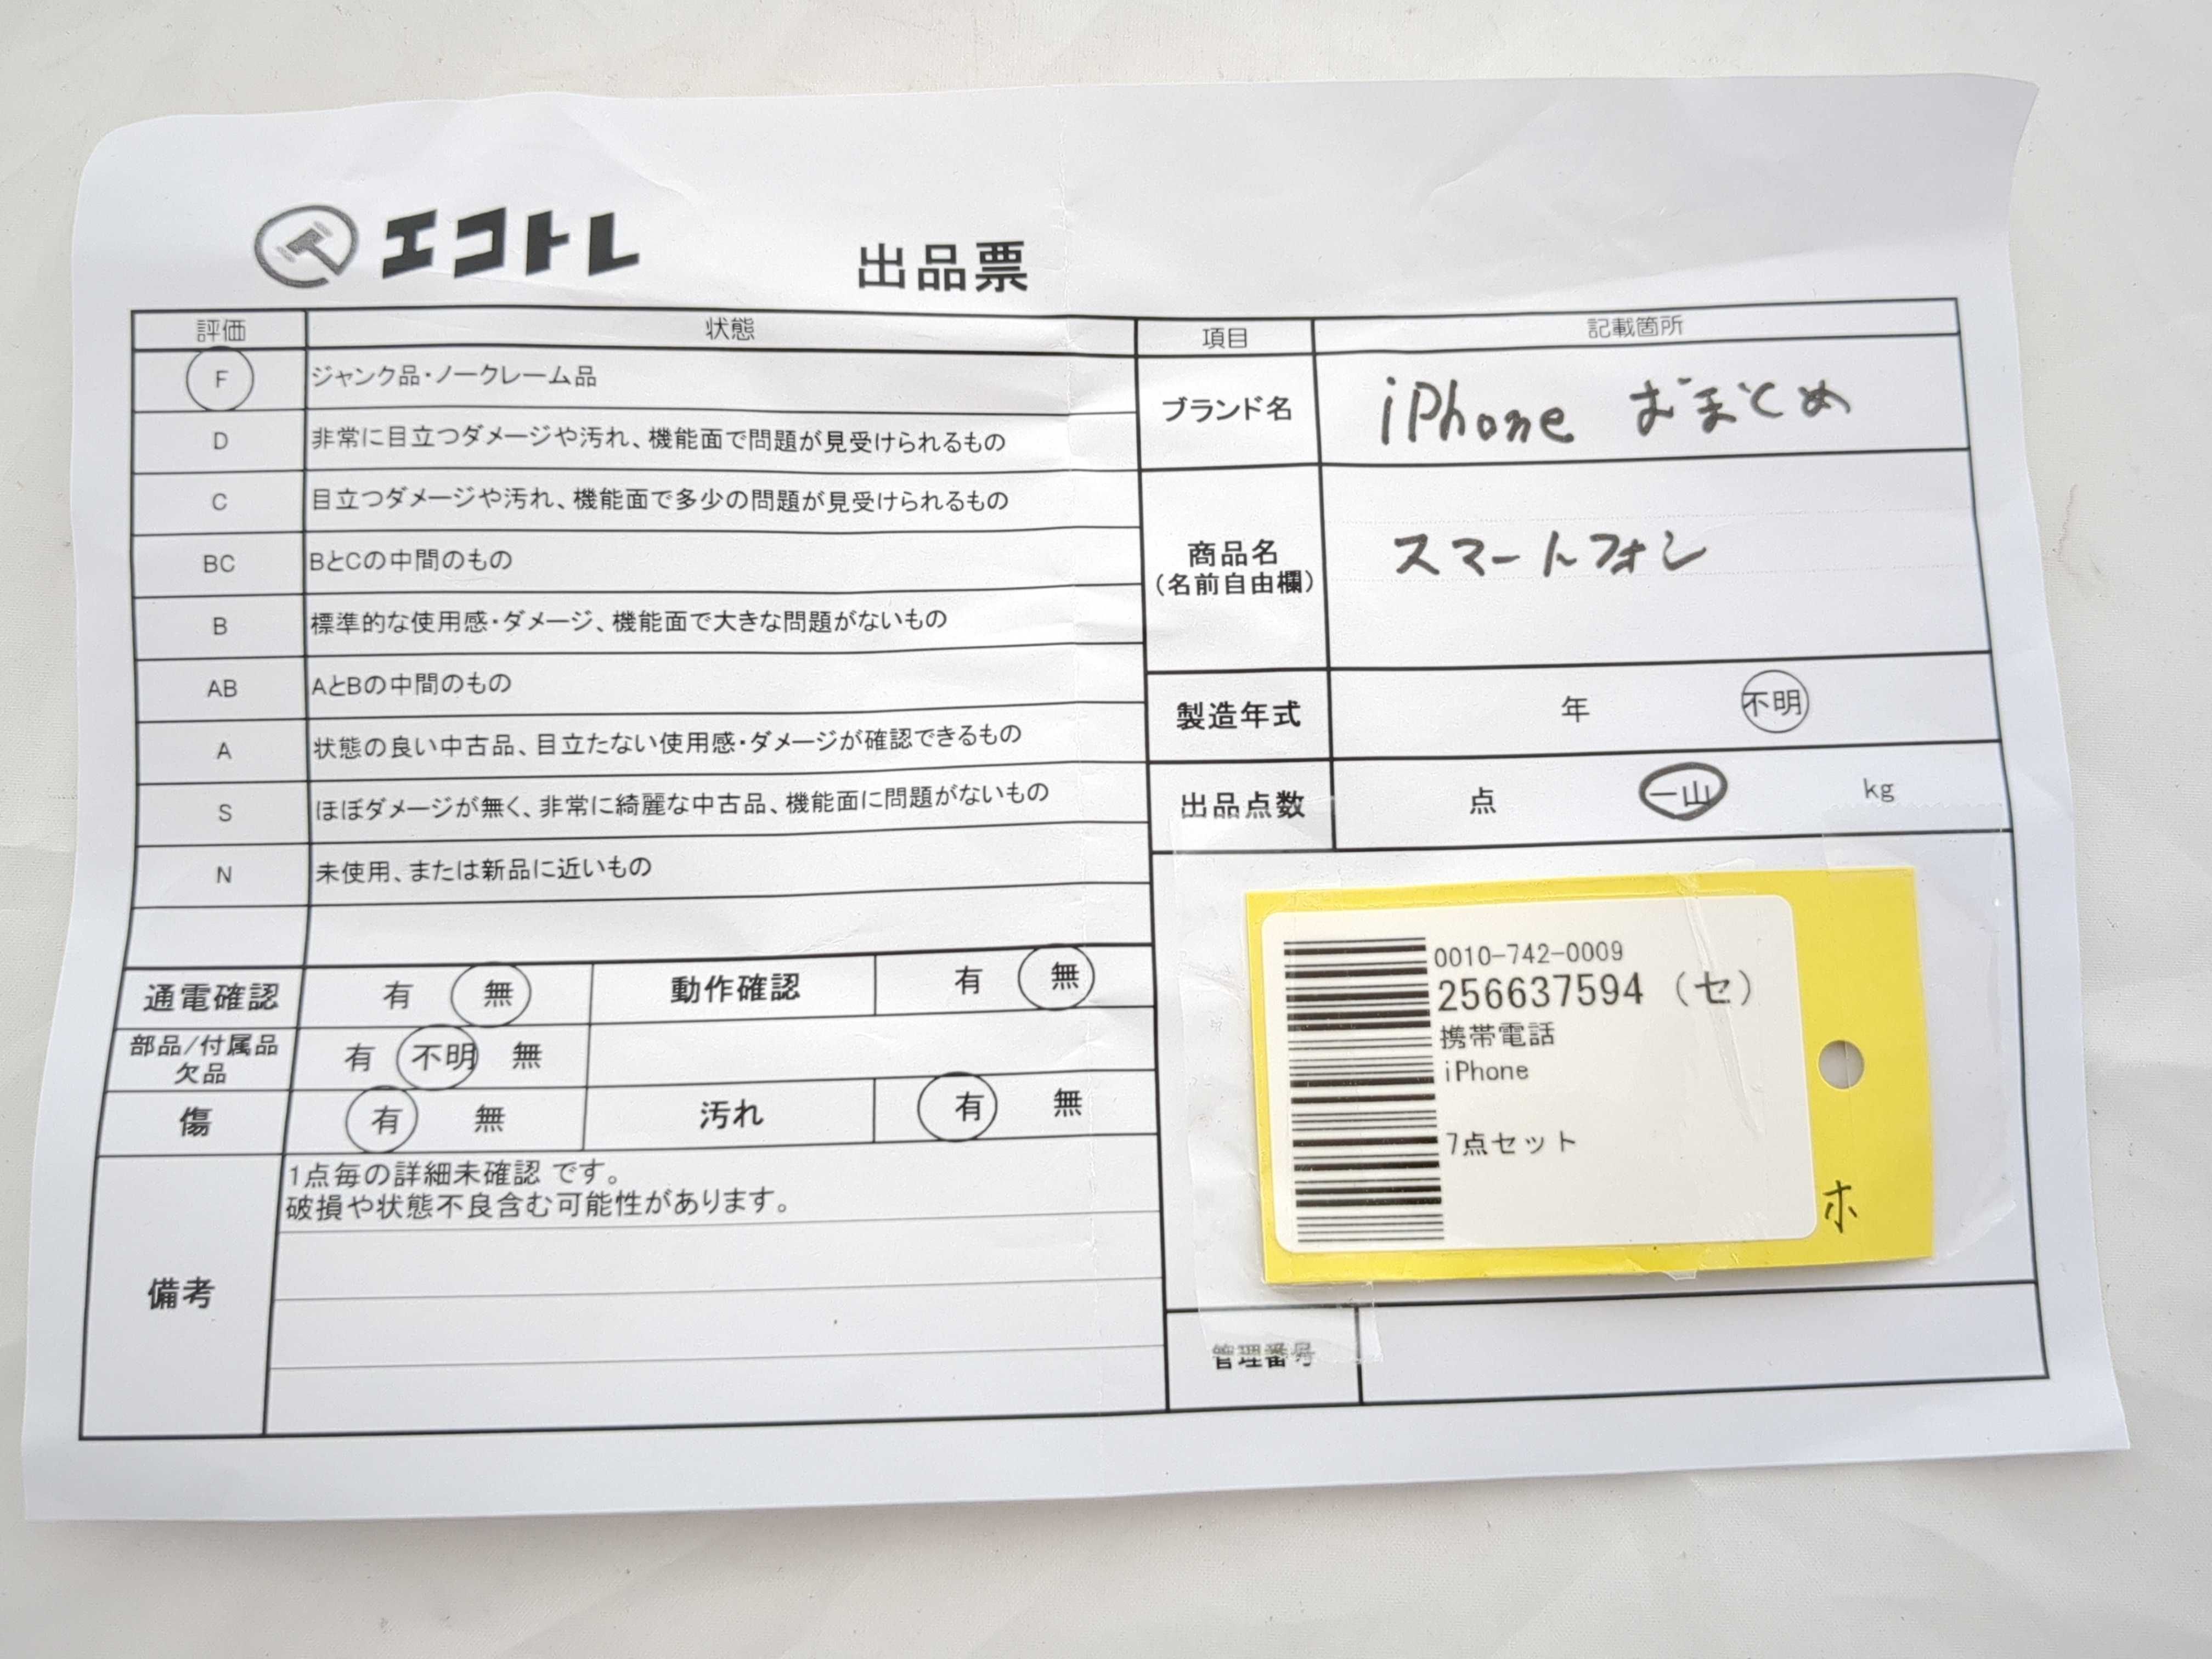 エコトレ
出品票
評価 状態
F ジャンク品・ノークレーム品
D 非常に目立つダメージや汚れ、機能面で問題が見受けられるもの
C 目立つダメージや汚れ、機能面で多少の問題が見受けられるもの
BC BとCの中間のもの
B 標準的な使用感・ダメージ、機能面で大きな問題がないもの
AB AとBの中間のもの
A 状態の良い中古品、目立たない使用感・ダメージが確認できるもの
S ほぼダメージが無く、非常に綺麗な中古品、機能面に問題がないもの
N 未使用、または新品に近いもの
通電確認 有 無 動作確認 有 無
部品/付属品
欠品
有 不明 無
傷 有 無 汚れ 有 無
備考
1点毎の詳細未確認 です。
破損や状態不良含む可能性があります。
項目 記載箇所
ブランド名 iPhone おまとめ
商品名
(名前自由欄)
スマートフォン
製造年式 年 不明
出品点数 点 一山 kg
0010-742-0009
256637594 (セ)
携帯電話
iPhone
7点セット
ホ
管理番号